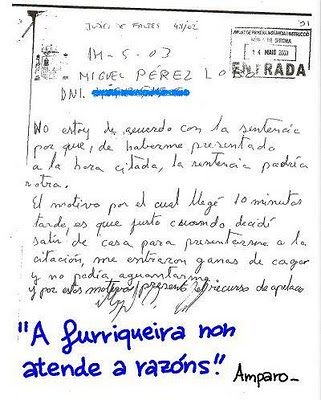 JUICI DE FALTAS 48/02
14-5-03
MIGUEL PEREZ LO
14 MAIO 2003
ENTRADA
DNI.
NO estoy de acuerdo con la sentencia
por que, de haberme presentado
a la hora citada, la sentencia podría
otra.
El motivo por el cual llegé 10 minutos
tarde, es que justo cuando decidí
salir de casa para presentarme a la
citación, me entraron ganas de cagar
y no podía aguantarme
y por estos motivos presento el recurso de apelaco
"A furriqueira non
atende a razóns!"
Amparo_